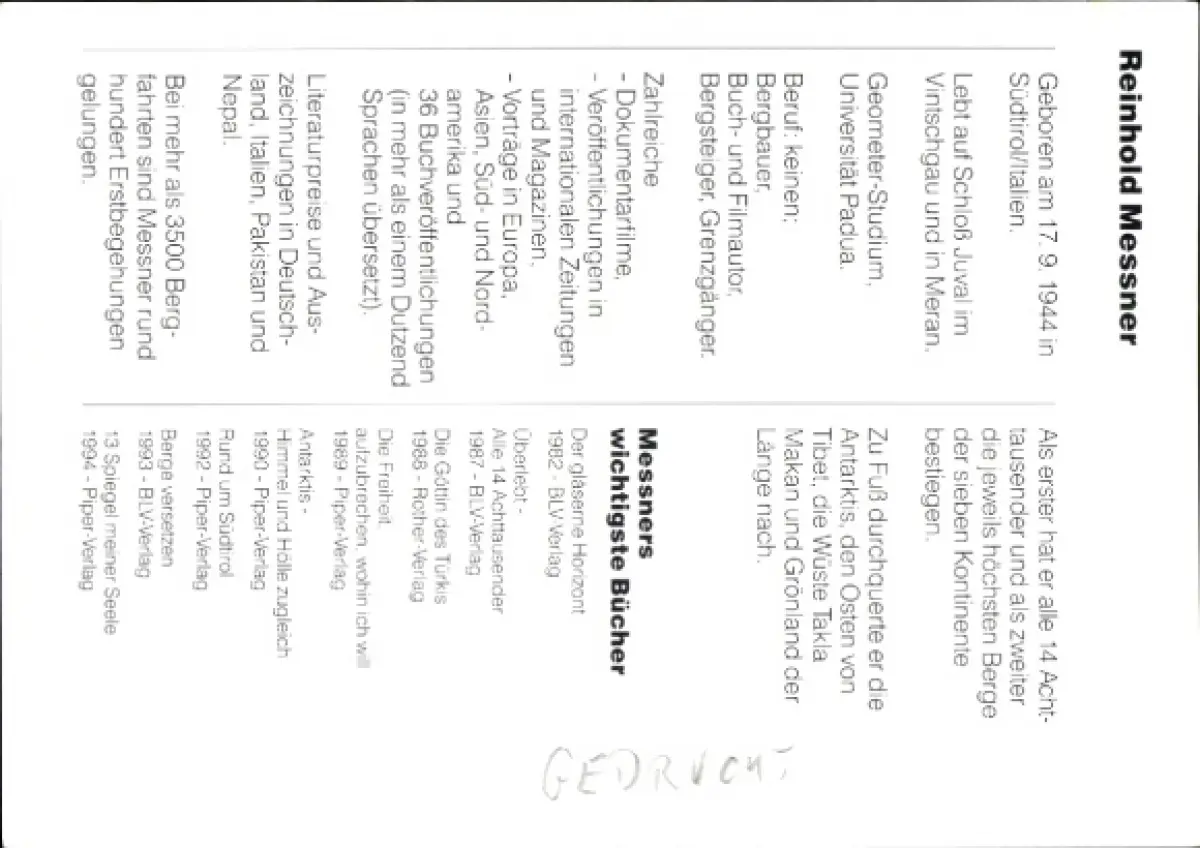 Reinhold Messner
Geboren am 17. 9. 1944 in
Südtirol/Italien.
Lebt auf Schloß Juval im
Vintschgau und in Meran.
Geometer-Studium,
Universität Padua.
Beruf: keinen;
Bergbauer,
Buch- und Filmautor,
Bergsteiger, Grenzgänger.
Zahlreiche
- Dokumentarfilme,
- Veröffentlichungen in
internationalen Zeitungen
und Magazinen,
- Vorträge in Europa,
Asien, Süd- und Nord-
amerika und
36 Buchveröffentlichungen
(in mehr als einem Dutzend
Sprachen übersetzt).
Literaturpreise und Aus-
zeichnungen in Deutsch-
land, Italien, Pakistan und
Nepal.
Bei mehr als 3500 Berg-
fahrten sind Messner rund
hundert Erstbegehungen
gelungen.
Als erster hat er alle 14 Acht-
tausender und als zweiter
die jeweils höchsten Berge
der sieben Kontinente
bestiegen.
Zu Fuß durchquerte er die
Antarktis, den Osten von
Tibet, die Wüste Takla
Makan und Grönland der
Länge nach.
Messners
wichtigste Bücher
Der gläserne Horizont
1982 - BLV-Verlag
Überlebt -
Alle 14 Achttausender
1987 - BLV-Verlag
Die Göttin des Türkis
1988 - Rother-Verlag
Die Freiheit,
aufzubrechen, wohin ich will
1989 - Piper-Verlag
Antarktis -
Himmel und Hölle zugleich
1990 - Piper-Verlag
Rund um Südtirol
1992 - Piper-Verlag
Berge versetzen
1993 - BLV-Verlag
13 Spiegel meiner Seele
1994 - Piper-Verlag
GEDRUCKT